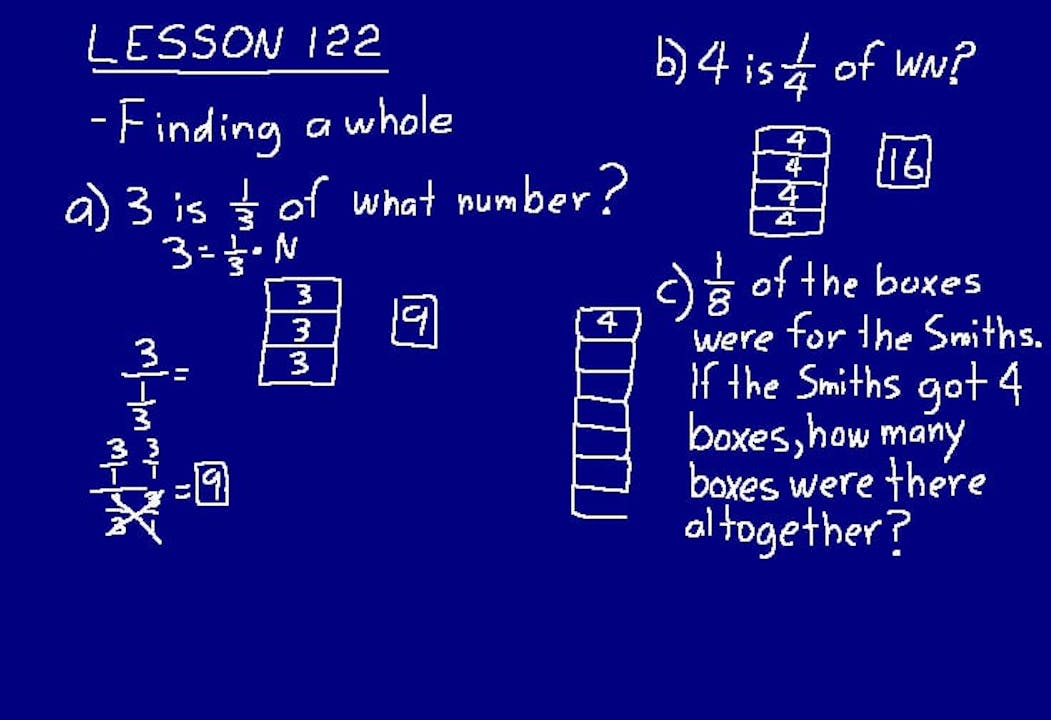 LESSON 122
- Finding a whole
a) 3 is 1/3 of what number?
3 = 1/3 · N
3
3
3
9
3 / 1/3 =
3/1 3/1 / 1/3 3/1 = 9
b) 4 is 1/4 of WN?
4
4
4
4
16
4
c) 1/8 of the boxes
were for the Smiths.
If the Smiths got 4
boxes, how many
boxes were there
altogether?